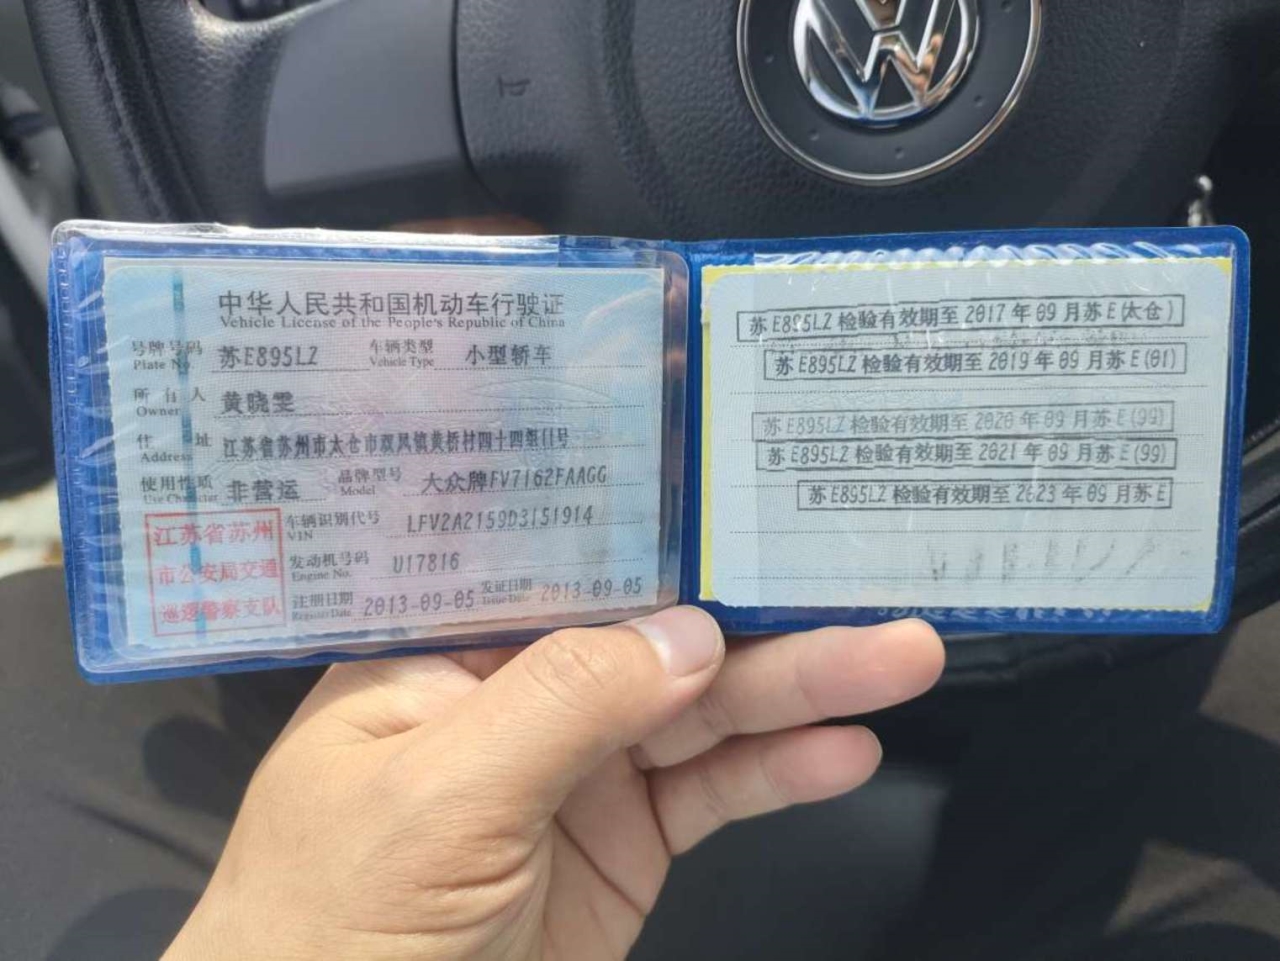 中华人民共和国机动车行驶证
Vehicle License of the People's Republic of China
号牌号码 Plate No. 苏E895LZ 车辆类型 Vehicle Type 小型轿车
所有人 Owner 黄晓雯
住址 Address 江苏省苏州市太仓市双凤镇黄桥村四十四组11号
使用性质 Use Character 非营运 品牌型号 Model 大众牌FV7162FAAGG
车辆识别代号 VIN LFV2A2159D3151914
发动机号码 Engine No. U17816
注册日期 Register Date 2013-09-05 发证日期 Issue Date 2013-09-05
江苏省苏州
市公安局交通
巡逻警察支队
苏E895LZ 检验有效期至 2017 年 09 月苏E(太仓)
苏E895LZ 检验有效期至 2019 年 09 月苏E(01)
苏E895LZ 检验有效期至 2020 年 09 月苏E(99)
苏E895LZ 检验有效期至 2021 年 09 月苏E(99)
苏E895LZ 检验有效期至 2023 年 09 月苏E